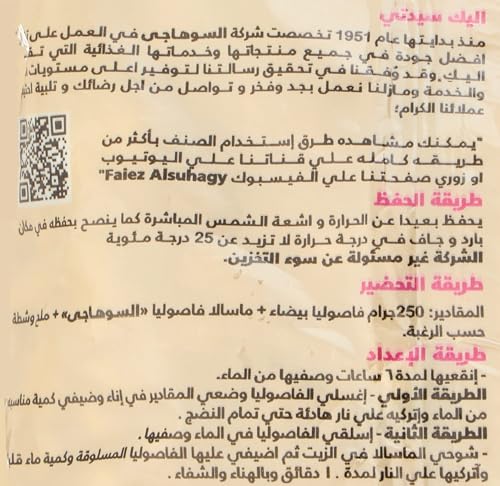 اليك سيدتي
منذ بدايتها عام 1951 تخصصت شركة السوهاجى في العمل على
افضل جودة في جميع منتجاتها وخدماتها الغذائية التي
اليك وقد وُفقنا في تحقيق رسالتنا لتوفير اعلى مستويات
والخدمة ومازلنا نعمل بجد وفخر و تواصل من اجل رضائك و تلبية
عملائنا الكرام؛
"يمكنك مشاهده طرق إستخدام الصنف بأكثر من
طريقه كامله علي قناتنا علي اليوتيوب
او زوري صفحتنا علي الفيسبوك Faiez Alsuhagy"
طريقة الحفظ
يحفظ بعيدا عن الحرارة و اشعة الشمس المباشرة كما ينصح بحفظه في مكان
بارد و جاف في درجة حرارة لا تزيد عن 25 درجة مئوية
الشركة غير مسئولة عن سوء التخزين.
طريقة التحضير
المقادير: 250جرام فاصوليا بيضاء + ماسالا فاصوليا «السوهاجى» + ملح وشطة
حسب الرغبة.
طريقة الإعداد
- إنقعيها لمدة ٦ ساعات وصفيها من الماء.
الطريقة الأولي - إغسلي الفاصوليا وضعي المقادير في إناء وضيفي كمية مناسبه
من الماء وإتركيه علي نار هادئة حتي تمام النضج .
الطريقة الثانية - إسلقي الفاصوليا في الماء وصفيها.
- شوحي الماسالا في الزيت ثم اضيفي عليها الفاصوليا المسلوقة وكمية ماء
وآتركيها علي النار لمدة ١٠ دقائق وبالهناء والشفاء .